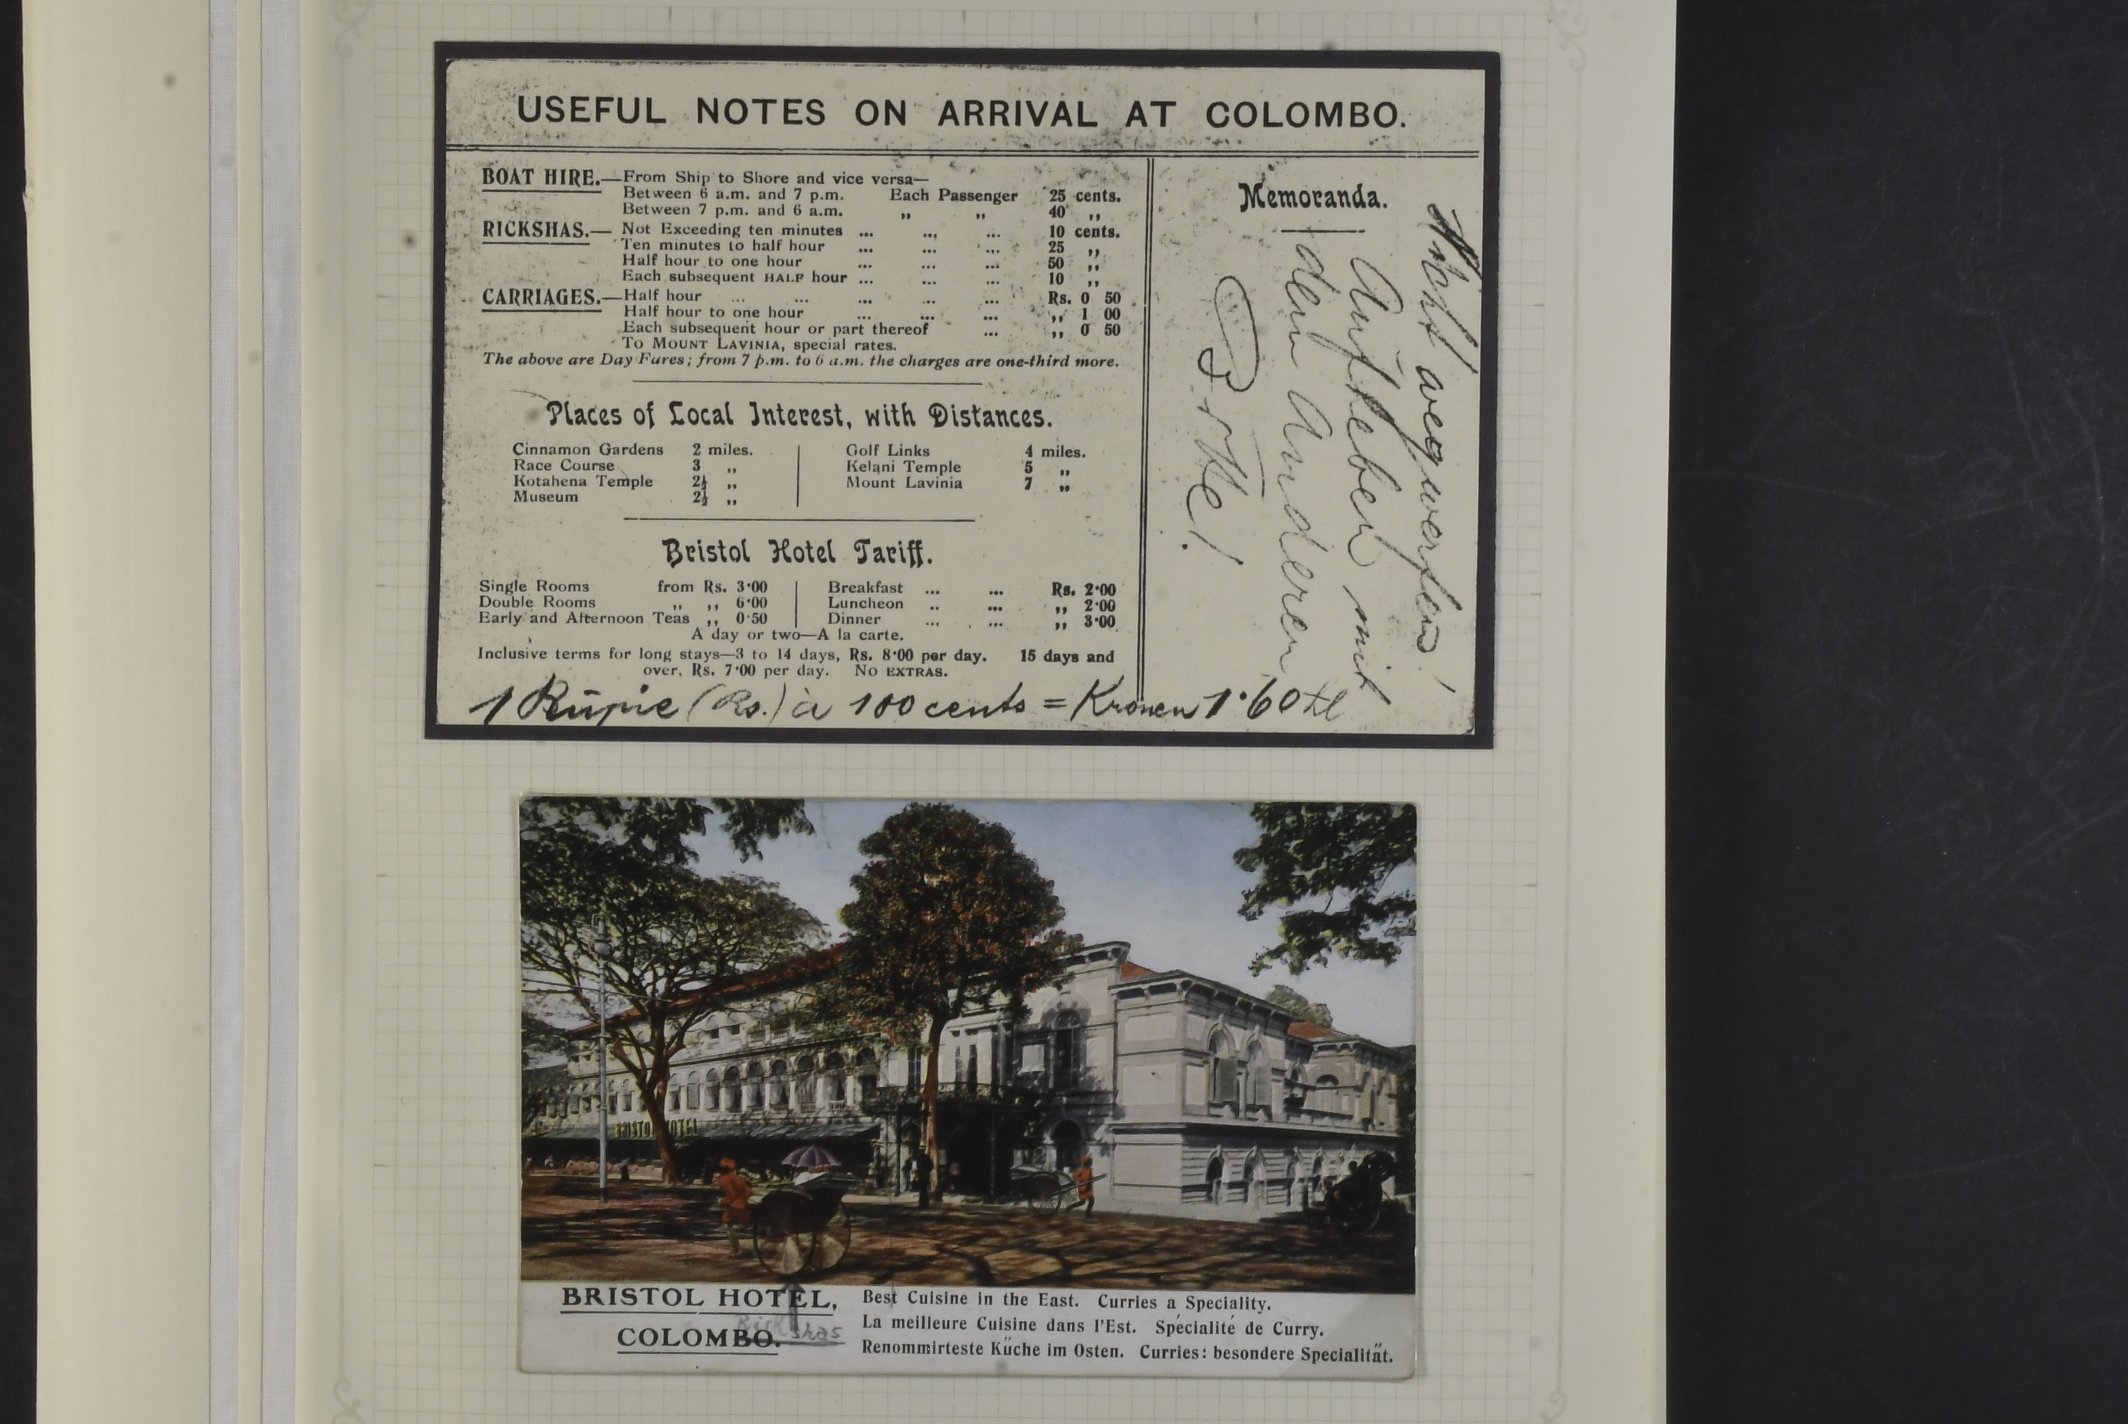 USEFUL NOTES ON ARRIVAL AT COLOMBO.
BOAT HIRE.—From Ship to Shore and vice versa—
Between 6 a.m. and 7 p.m. Each Passenger 25 cents.
Between 7 p.m. and 6 a.m. „ „ 40 „
RICKSHAS.— Not Exceeding ten minutes ... ... ... 10 cents.
Ten minutes to half hour ... ... ... 25 „
Half hour to one hour ... ... ... 50 „
Each subsequent HALF hour ... ... ... 10 „
CARRIAGES.—Half hour ... ... ... ... ... Rs. 0 50
Half hour to one hour ... ... ... „ 1 00
Each subsequent hour or part thereof ... „ 0 50
To MOUNT LAVINIA, special rates.
The above are Day Fares; from 7 p.m. to 6 a.m. the charges are one-third more.
Places of Local Interest, with Distances.
Cinnamon Gardens 2 miles.
Race Course 3 „
Kotahena Temple 2½ „
Museum 2½ „
Golf Links 4 miles.
Kelani Temple 5 „
Mount Lavinia 7 „
Bristol Hotel Tariff.
Single Rooms from Rs. 3·00
Double Rooms „ „ 6·00
Early and Afternoon Teas „ 0·50
Breakfast ... ... Rs. 2·00
Luncheon .. ... „ 2·00
Dinner ... ... „ 3·00
A day or two—A la carte.
Inclusive terms for long stays—3 to 14 days, Rs. 8·00 per day. 15 days and
over, Rs. 7·00 per day. NO EXTRAS.
1 Rupie (Rs.) à 100 cents = Kronen 1·60 hl
Memoranda.
Nicht wegwerfen!
Aufheben mit
den Anderen
Bitte!
BRISTOL HOTEL
BRISTOL HOTEL,
COLOMBO.
Rickshas
Best Cuisine in the East. Curries a Speciality.
La meilleure Cuisine dans l'Est. Spécialité de Curry.
Renommirteste Küche im Osten. Curries: besondere Specialität.